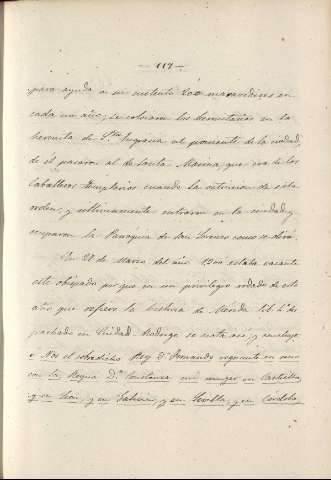 — 117 —
para ayuda a su sustento 200 maravedises en
cada un año; se colocaron los comentarios en la
hermita de S.ta Engracia al poniente de la ciudad,
de el pasaron al de Santa Marina, que era de los
Caballeros Templarios cuando la estincion de esta
orden; y ultimamente entraron en la ciudad, y
ocuparon la Parroquia de San Lorenzo como se dirá.
En 21 de Marzo del año 1300 estaba vacante
este obispado por que en un privilegio rodado de este
año que refiere la historia de Merida lib. 4.º
fechado en Ciudad Rodrigo se nota así, y concluye
Nos el sobredicho Rey D. Fernando regnante en uno
con la Reyna D.ª Constanza mi muger en Castilla
y en Leon, y en Galicia, y en Sevilla, y en Cordoba